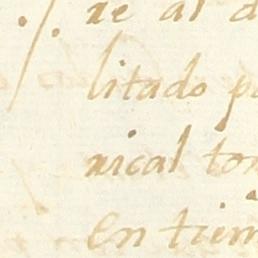 re al d
litado p
nical to
En tiem